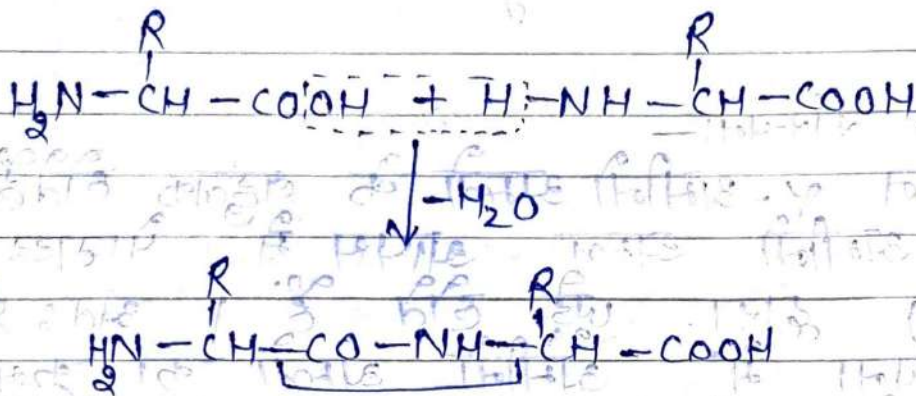 R R
H₂N - CH - COOH + H - NH - CH - COOH
-H₂O
R R
H₂N - CH - CO - NH - CH - COOH